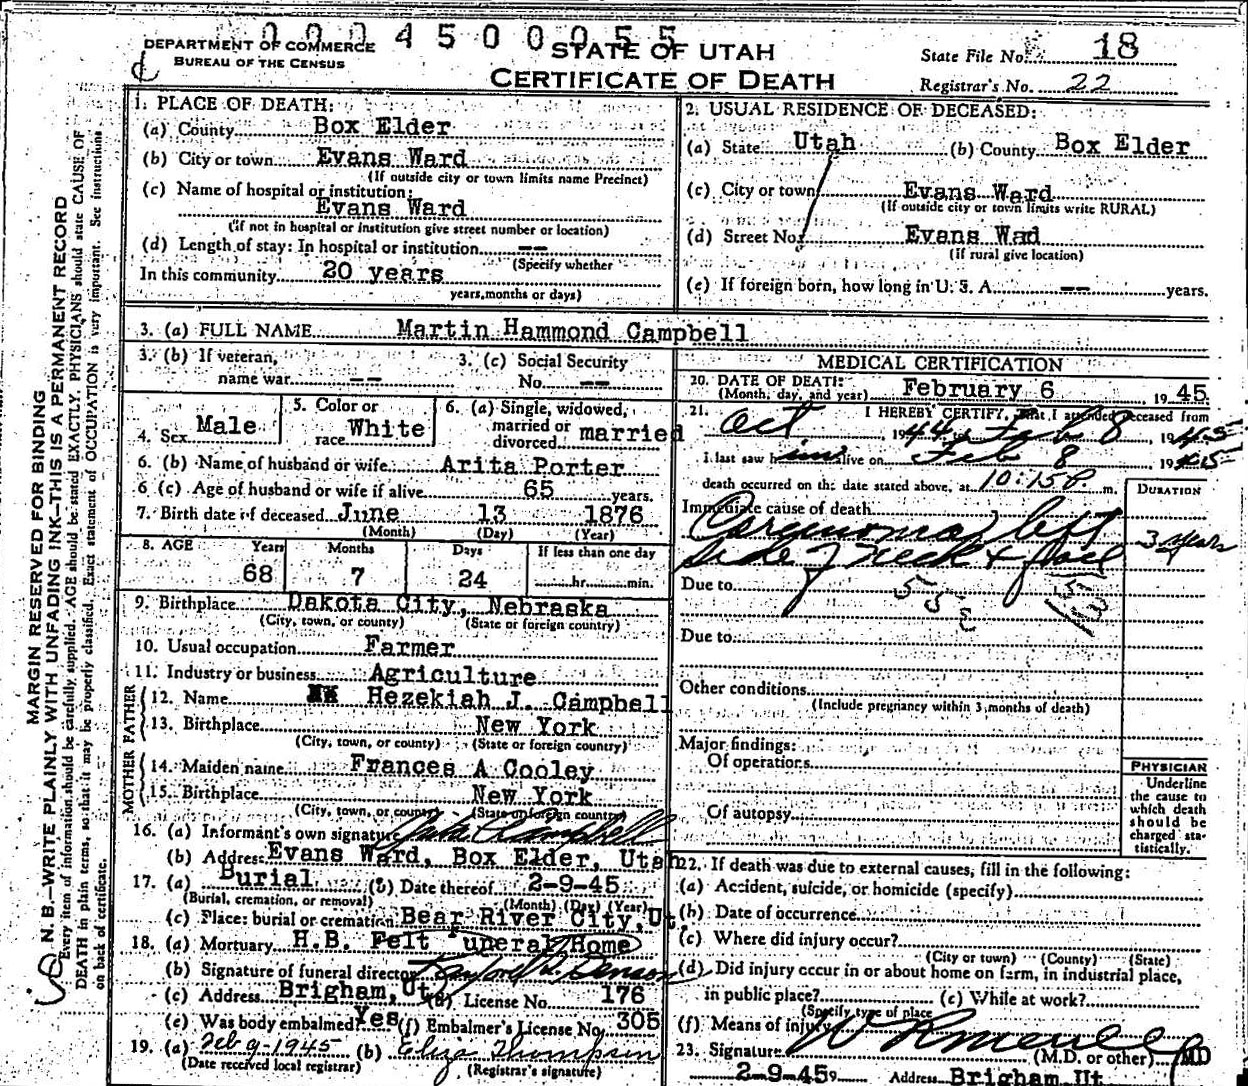 0004500055
DEPARTMENT OF COMMERCE
BUREAU OF THE CENSUS
STATE OF UTAH
CERTIFICATE OF DEATH
State File No. 18
Registrar's No. 22
MARGIN RESERVED FOR BINDING
N. B.—WRITE PLAINLY WITH UNFADING INK—THIS IS A PERMANENT RECORD
Every item of information should be carefully supplied. AGE should be stated EXACTLY. PHYSICIANS should state CAUSE OF
DEATH in plain terms, so that it may be properly classified. Exact statement of OCCUPATION is very important. See instructions
on back of certificate.
1. PLACE OF DEATH:
(a) County Box Elder
(b) City or town Evans Ward
(If outside city or town limits name Precinct)
(c) Name of hospital or institution:
Evans Ward
(if not in hospital or institution give street number or location)
(d) Length of stay: In hospital or institution --
(Specify whether
In this community 20 years
years, months or days)
2. USUAL RESIDENCE OF DECEASED:
(a) State Utah (b) County Box Elder
(c) City or town Evans Ward
(If outside city or town limits write RURAL)
(d) Street No. Evans Wad
(If rural give location)
(e) If foreign born, how long in U. S. A. -- years.
3. (a) FULL NAME Martin Hammond Campbell
3. (b) If veteran,
name war --
3. (c) Social Security
No. --
4. Sex Male
5. Color or
race White
6. (a) Single, widowed,
married or
divorced married
6. (b) Name of husband or wife Arita Porter
6 (c) Age of husband or wife if alive 65 years.
7. Birth date of deceased June 13 1876
(Month) (Day) (Year)
8. AGE Years Months Days If less than one day
68 7 24 hr. min.
9. Birthplace Dakota City, Nebraska
(City, town, or county) (State or foreign country)
10. Usual occupation Farmer
11. Industry or business Agriculture
FATHER
12. Name Hezekiah J. Campbell
13. Birthplace New York
(City, town, or county) (State or foreign country)
MOTHER
14. Maiden name Frances A Cooley
15. Birthplace New York
(City, town, or county) (State or foreign country)
16. (a) Informant's own signature Campbell
(b) Address Evans Ward, Box Elder, Utah
17. (a) Burial (b) Date thereof 2-9-45
(Burial, cremation, or removal) (Month) (Day) (Year)
(c) Place: burial or cremation Bear River City, Ut.
18. (a) Mortuary H.B. Felt Funeral Home
(b) Signature of funeral director
(c) Address Brigham, Ut (d) License No. 176
(e) Was body embalmed? Yes (f) Embalmer's License No. 305
19. (a) Feb 9-1945 (b) Eliza Thompson
(Date received local registrar) (Registrar's signature)
MEDICAL CERTIFICATION
20. DATE OF DEATH: February 6 19 45
(Month, day, and year)
21. I HEREBY CERTIFY, that I attended deceased from
Oct, 1944 to Feb 8 1945
I last saw him alive on Feb 8 1945
death occurred on the date stated above, at 10:15 P m.
DURATION
Immediate cause of death
Carcinoma, left
side of neck + face 3 years
Due to 555
Due to
Other conditions
(Include pregnancy within 3 months of death)
Major findings:
Of operations
Of autopsy
PHYSICIAN
Underline
the cause to
which death
should be
charged sta-
tistically.
22. If death was due to external causes, fill in the following:
(a) Accident, suicide, or homicide (specify)
(b) Date of occurrence
(c) Where did injury occur?
(City or town) (County) (State)
(d) Did injury occur in or about home on farm, in industrial place,
in public place? (e) While at work?
(Specify type of place
(f) Means of injury
23. Signature (M.D. or other) MD
2-9-459 Address Brigham Ut